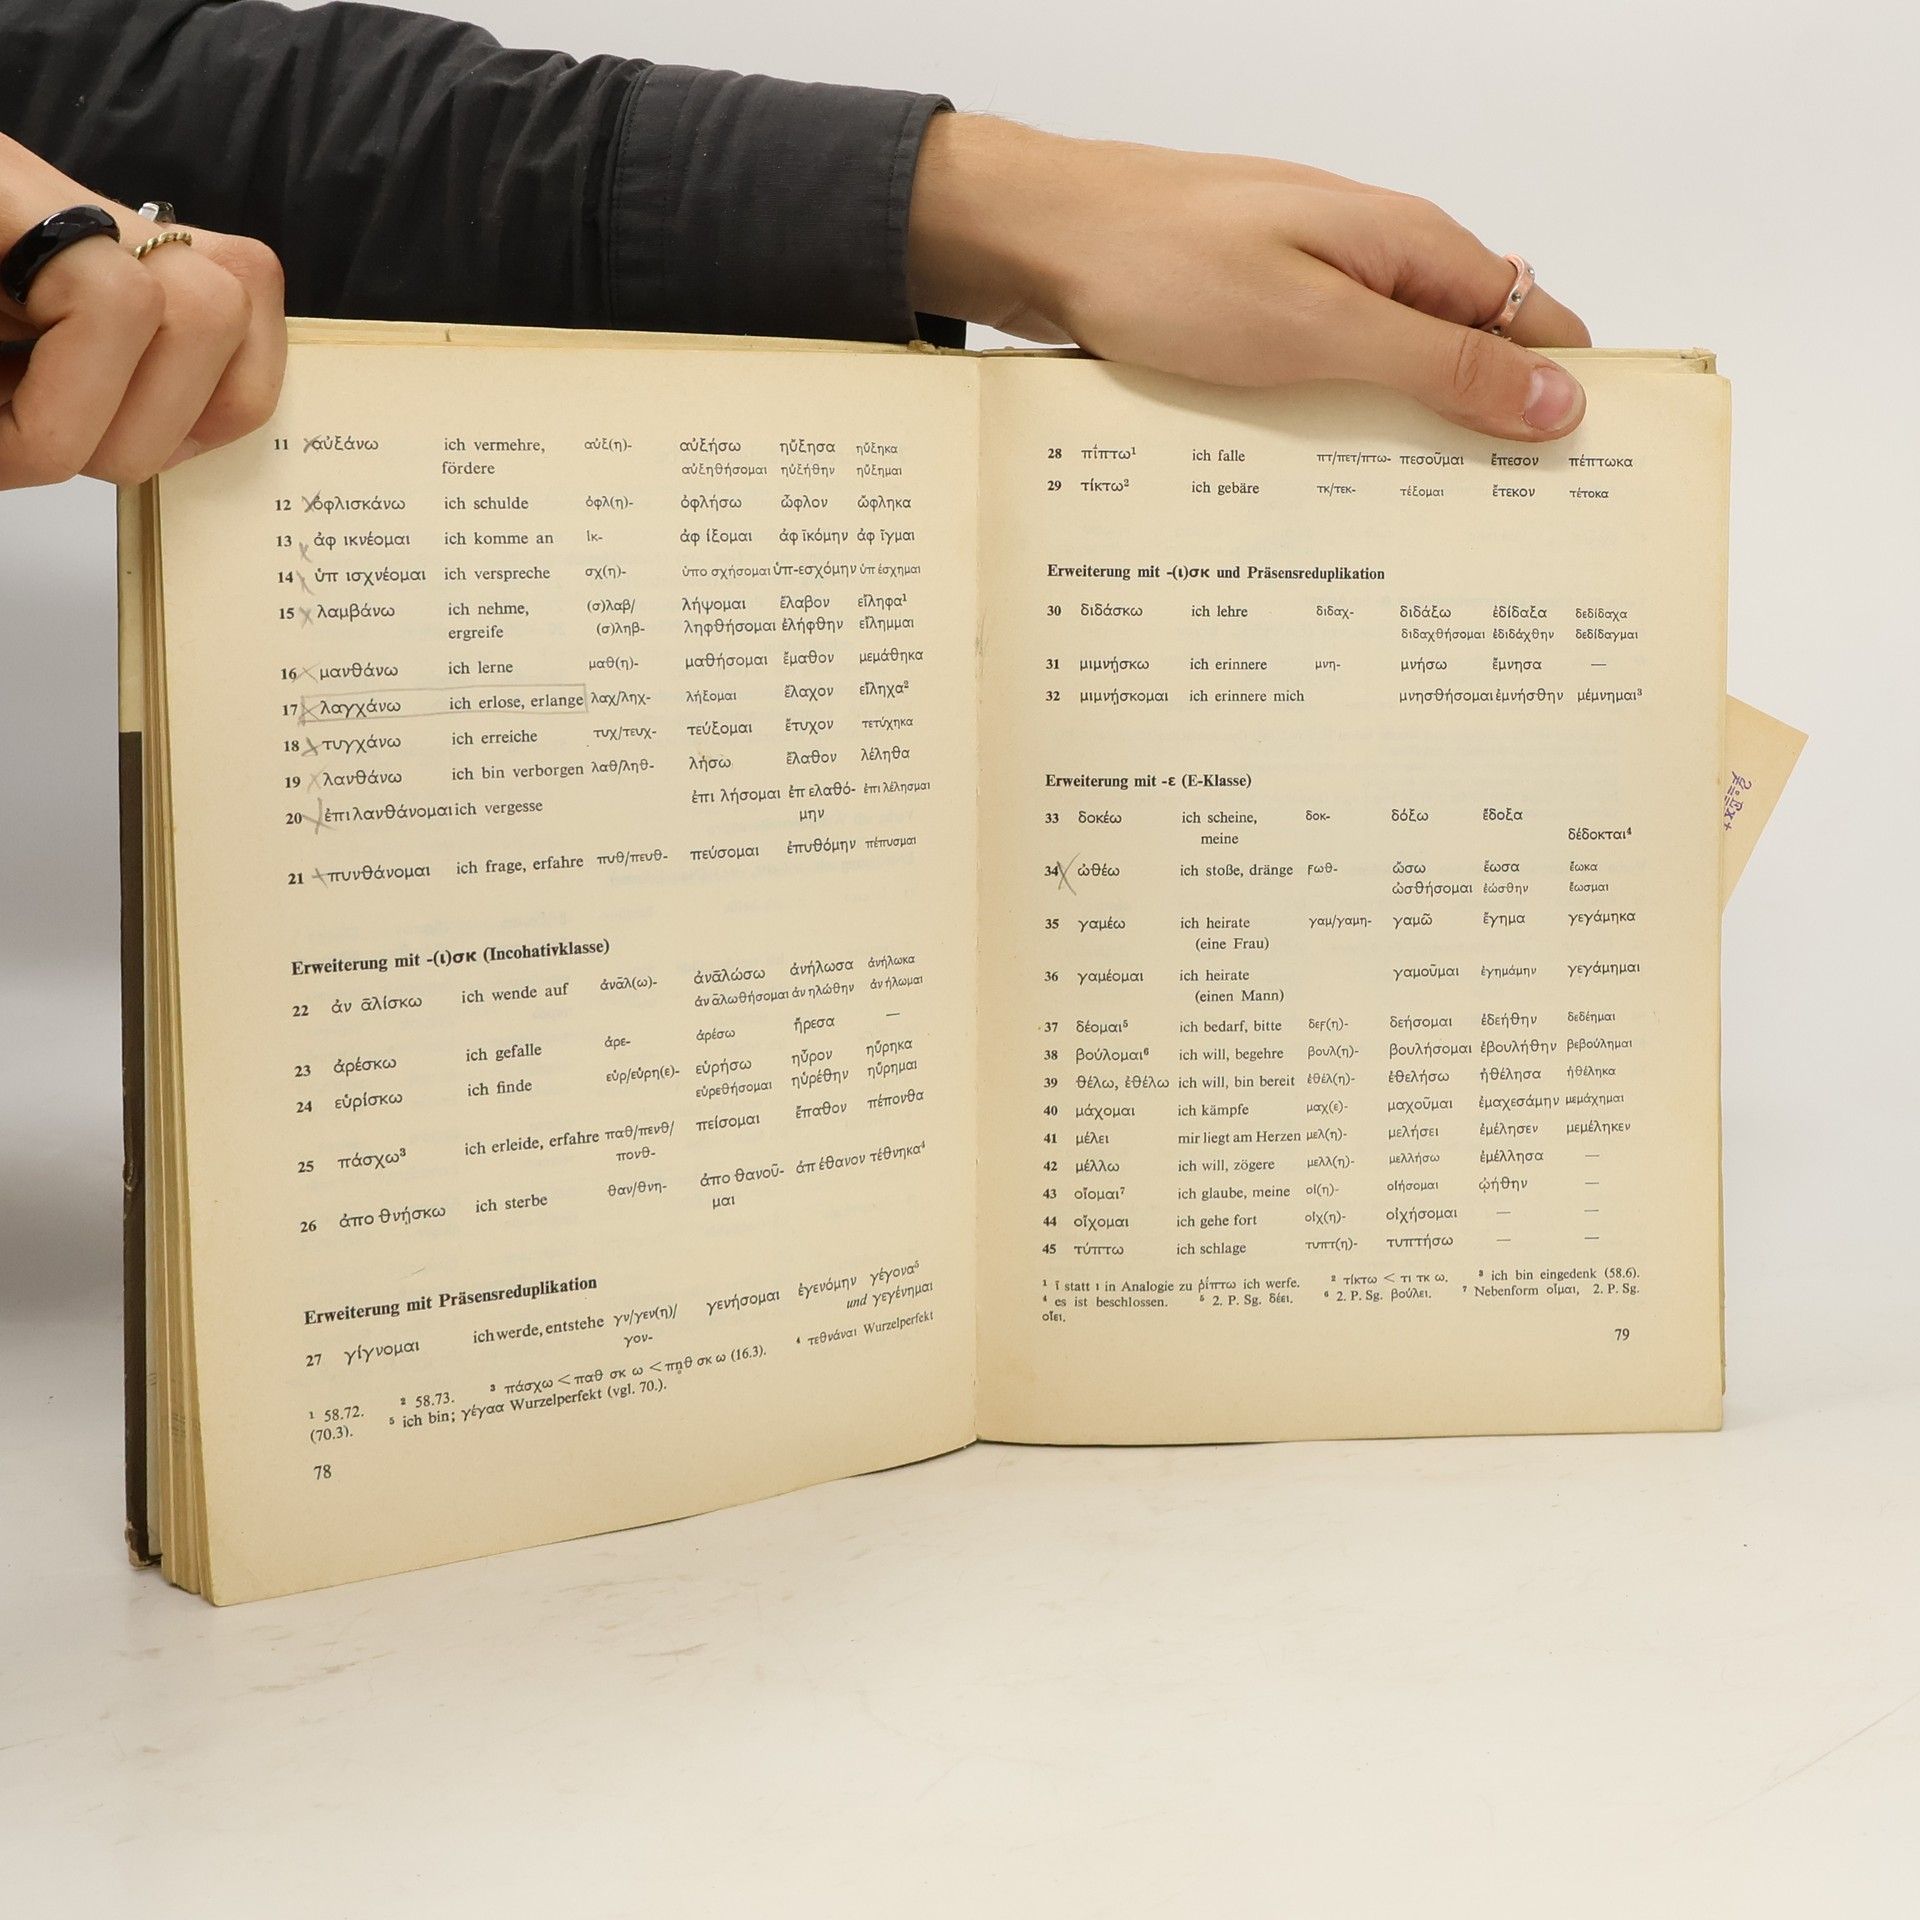 11 αὐξάνω ich vermehre, αὐξ(η)- αὐξήσω ηὔξησα ηὔξηκα
fördere αὐξηθήσομαι ηὐξήθην ηὔξημαι
12 ὀφλισκάνω ich schulde ὀφλ(η)- ὀφλήσω ὦφλον ὤφληκα
13 ἀφ ικνέομαι ich komme an ἱκ- ἀφ ίξομαι ἀφ ῑκόμην ἀφ ῖγμαι
14 ὑπ ισχνέομαι ich verspreche σχ(η)- ὑπο σχήσομαι ὑπ-εσχόμην ὑπ έσχημαι
15 λαμβάνω ich nehme, (σ)λαβ/ λήψομαι ἔλαβον εἴληφα¹
ergreife (σ)ληβ- ληφθήσομαι ἐλήφθην εἴλημμαι
16 μανθάνω ich lerne μαθ(η)- μαθήσομαι ἔμαθον μεμάθηκα
17 λαγχάνω ich erlose, erlange λαχ/ληχ- λήξομαι ἔλαχον εἴληχα²
18 τυγχάνω ich erreiche τυχ/τευχ- τεύξομαι ἔτυχον τετύχηκα
19 λανθάνω ich bin verborgen λαθ/ληθ- λήσω ἔλαθον λέληθα
20 ἐπι λανθάνομαι ich vergesse ἐπι λήσομαι ἐπ ελαθό- ἐπι λέλησμαι
μην
21 πυνθάνομαι ich frage, erfahre πυθ/πευθ- πεύσομαι ἐπυθόμην πέπυσμαι
Erweiterung mit -(ι)σκ (Incohativklasse)
22 ἀν ᾱλίσκω ich wende auf ἀνᾱλ(ω)- ἀνᾱλώσω ἀνήλωσα ἀνήλωκα
ἀν ᾱλωθήσομαι ἀν ηλώθην ἀν ήλωμαι
23 ἀρέσκω ich gefalle ἀρε- ἀρέσω ἤρεσα —
24 εὑρίσκω ich finde εὑρ/εὑρη(ε)- εὑρήσω ηὗρον ηὕρηκα
εὑρεθήσομαι ηὑρέθην ηὕρημαι
25 πάσχω³ ich erleide, erfahre παθ/πενθ/ πείσομαι ἔπαθον πέπονθα
πονθ-
26 ἀπο θνῄσκω ich sterbe θαν/θνη- ἀπο θανοῦ- ἀπ έθανον τέθνηκα⁴
μαι
Erweiterung mit Präsensreduplikation
27 γίγνομαι ich werde, entstehe γν/γεν(η)/ γενήσομαι ἐγενόμην γέγονα⁵
γον- und γεγένημαι
¹ 58.72. ² 58.73. ³ πάσχω < παθ σκ ω < πn̥θ σκ ω (16.3). ⁴ τεθνάναι Wurzelperfekt
(70.3). ⁵ ich bin; γέγαα Wurzelperfekt (vgl. 70.).
78
28 πίπτω¹ ich falle πτ/πετ/πτω- πεσοῦμαι ἔπεσον πέπτωκα
29 τίκτω² ich gebäre τκ/τεκ- τέξομαι ἔτεκον τέτοκα
Erweiterung mit -(ι)σκ und Präsensreduplikation
30 διδάσκω ich lehre διδαχ- διδάξω ἐδίδαξα δεδίδαχα
διδαχθήσομαι ἐδιδάχθην δεδίδαγμαι
31 μιμνῄσκω ich erinnere μνη- μνήσω ἔμνησα —
32 μιμνῄσκομαι ich erinnere mich μνησθήσομαι ἐμνήσθην μέμνημαι³
Erweiterung mit -ε (E-Klasse)
33 δοκέω ich scheine, δοκ- δόξω ἔδοξα
meine δέδοκται⁴
34 ὠθέω ich stoße, dränge ϝωθ- ὤσω ἔωσα ἔωκα
ὠσθήσομαι ἐώσθην ἔωσμαι
35 γαμέω ich heirate γαμ/γαμη- γαμῶ ἔγημα γεγάμηκα
(eine Frau)
36 γαμέομαι ich heirate γαμοῦμαι ἐγημάμην γεγάμημαι
(einen Mann)
37 δέομαι⁵ ich bedarf, bitte δεϝ(η)- δεήσομαι ἐδεήθην δεδέημαι
38 βούλομαι⁶ ich will, begehre βουλ(η)- βουλήσομαι ἐβουλήθην βεβούλημαι
39 θέλω, ἐθέλω ich will, bin bereit ἐθέλ(η)- ἐθελήσω ἠθέλησα ἠθέληκα
40 μάχομαι ich kämpfe μαχ(ε)- μαχοῦμαι ἐμαχεσάμην μεμάχημαι
41 μέλει mir liegt am Herzen μελ(η)- μελήσει ἐμέλησεν μεμέληκεν
42 μέλλω ich will, zögere μελλ(η)- μελλήσω ἐμέλλησα —
43 οἴομαι⁷ ich glaube, meine οἰ(η)- οἰήσομαι ᾠήθην —
44 οἴχομαι ich gehe fort οἰχ(η)- οἰχήσομαι — —
45 τύπτω ich schlage τυπτ(η)- τυπτήσω — —
¹ ῑ statt ι in Analogie zu ῥίπτω ich werfe. ² τίκτω < τι τκ ω. ³ ich bin eingedenk (58.6).
⁴ es ist beschlossen. ⁵ 2. P. Sg. δέει. ⁶ 2. P. Sg. βούλει. ⁷ Nebenform οἶμαι, 2. P. Sg.
οἴει.
79